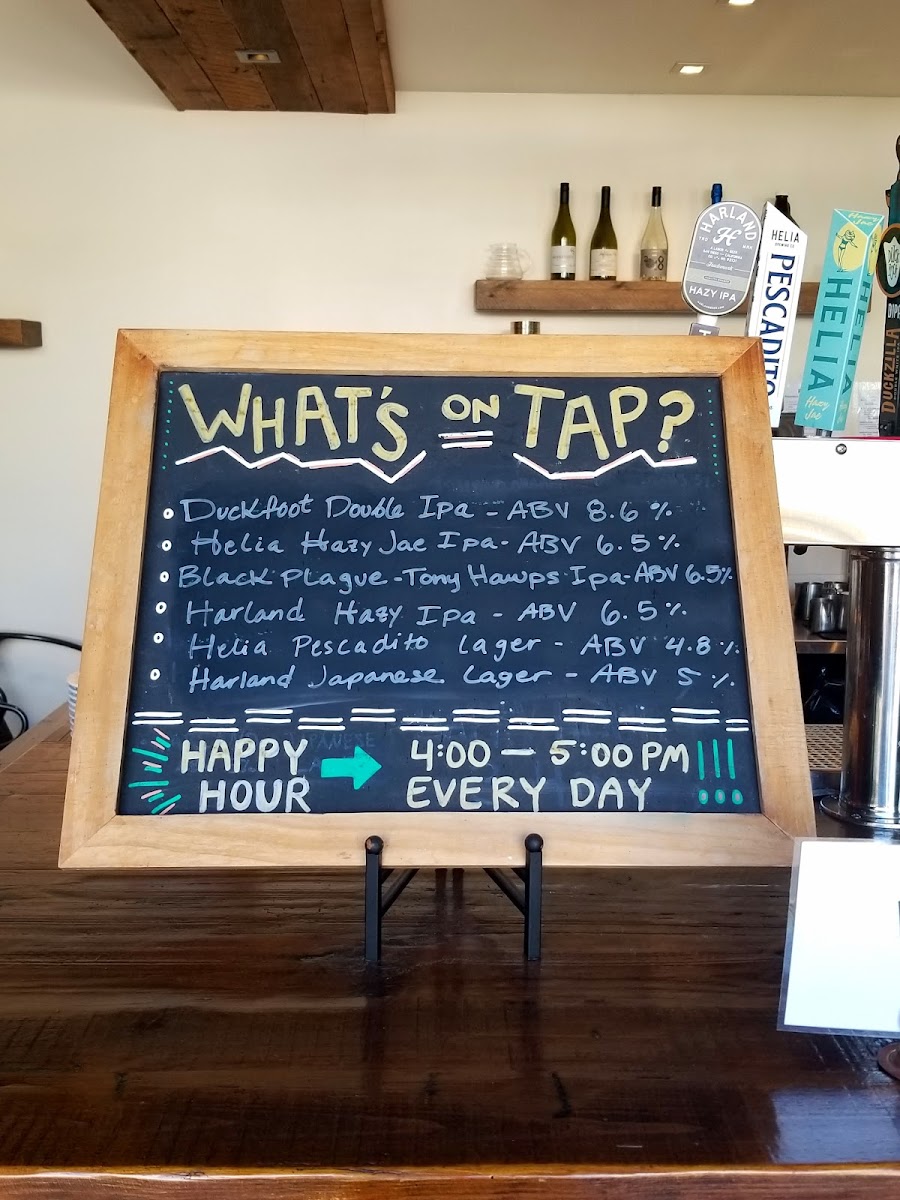 HARLAND
H
HAZY IPA
HELIA
PESCADITO
HELIA
Hazy
Jae
HELIA
DUCKZILLA
WHAT'S ON TAP?
Duckfoot Double Ipa - ABV 8.6 %
Helia Hazy Jae Ipa - ABV 6.5 %
Black Plague - Tony Hawps Ipa - ABV 6.5%
Harland Hazy Ipa - ABV 6.5 %
Helia Pescadito Lager - ABV 4.8 %
Harland Japanese Lager - ABV 5 %
HAPPY 4:00 — 5:00 PM !!!
HOUR EVERY DAY